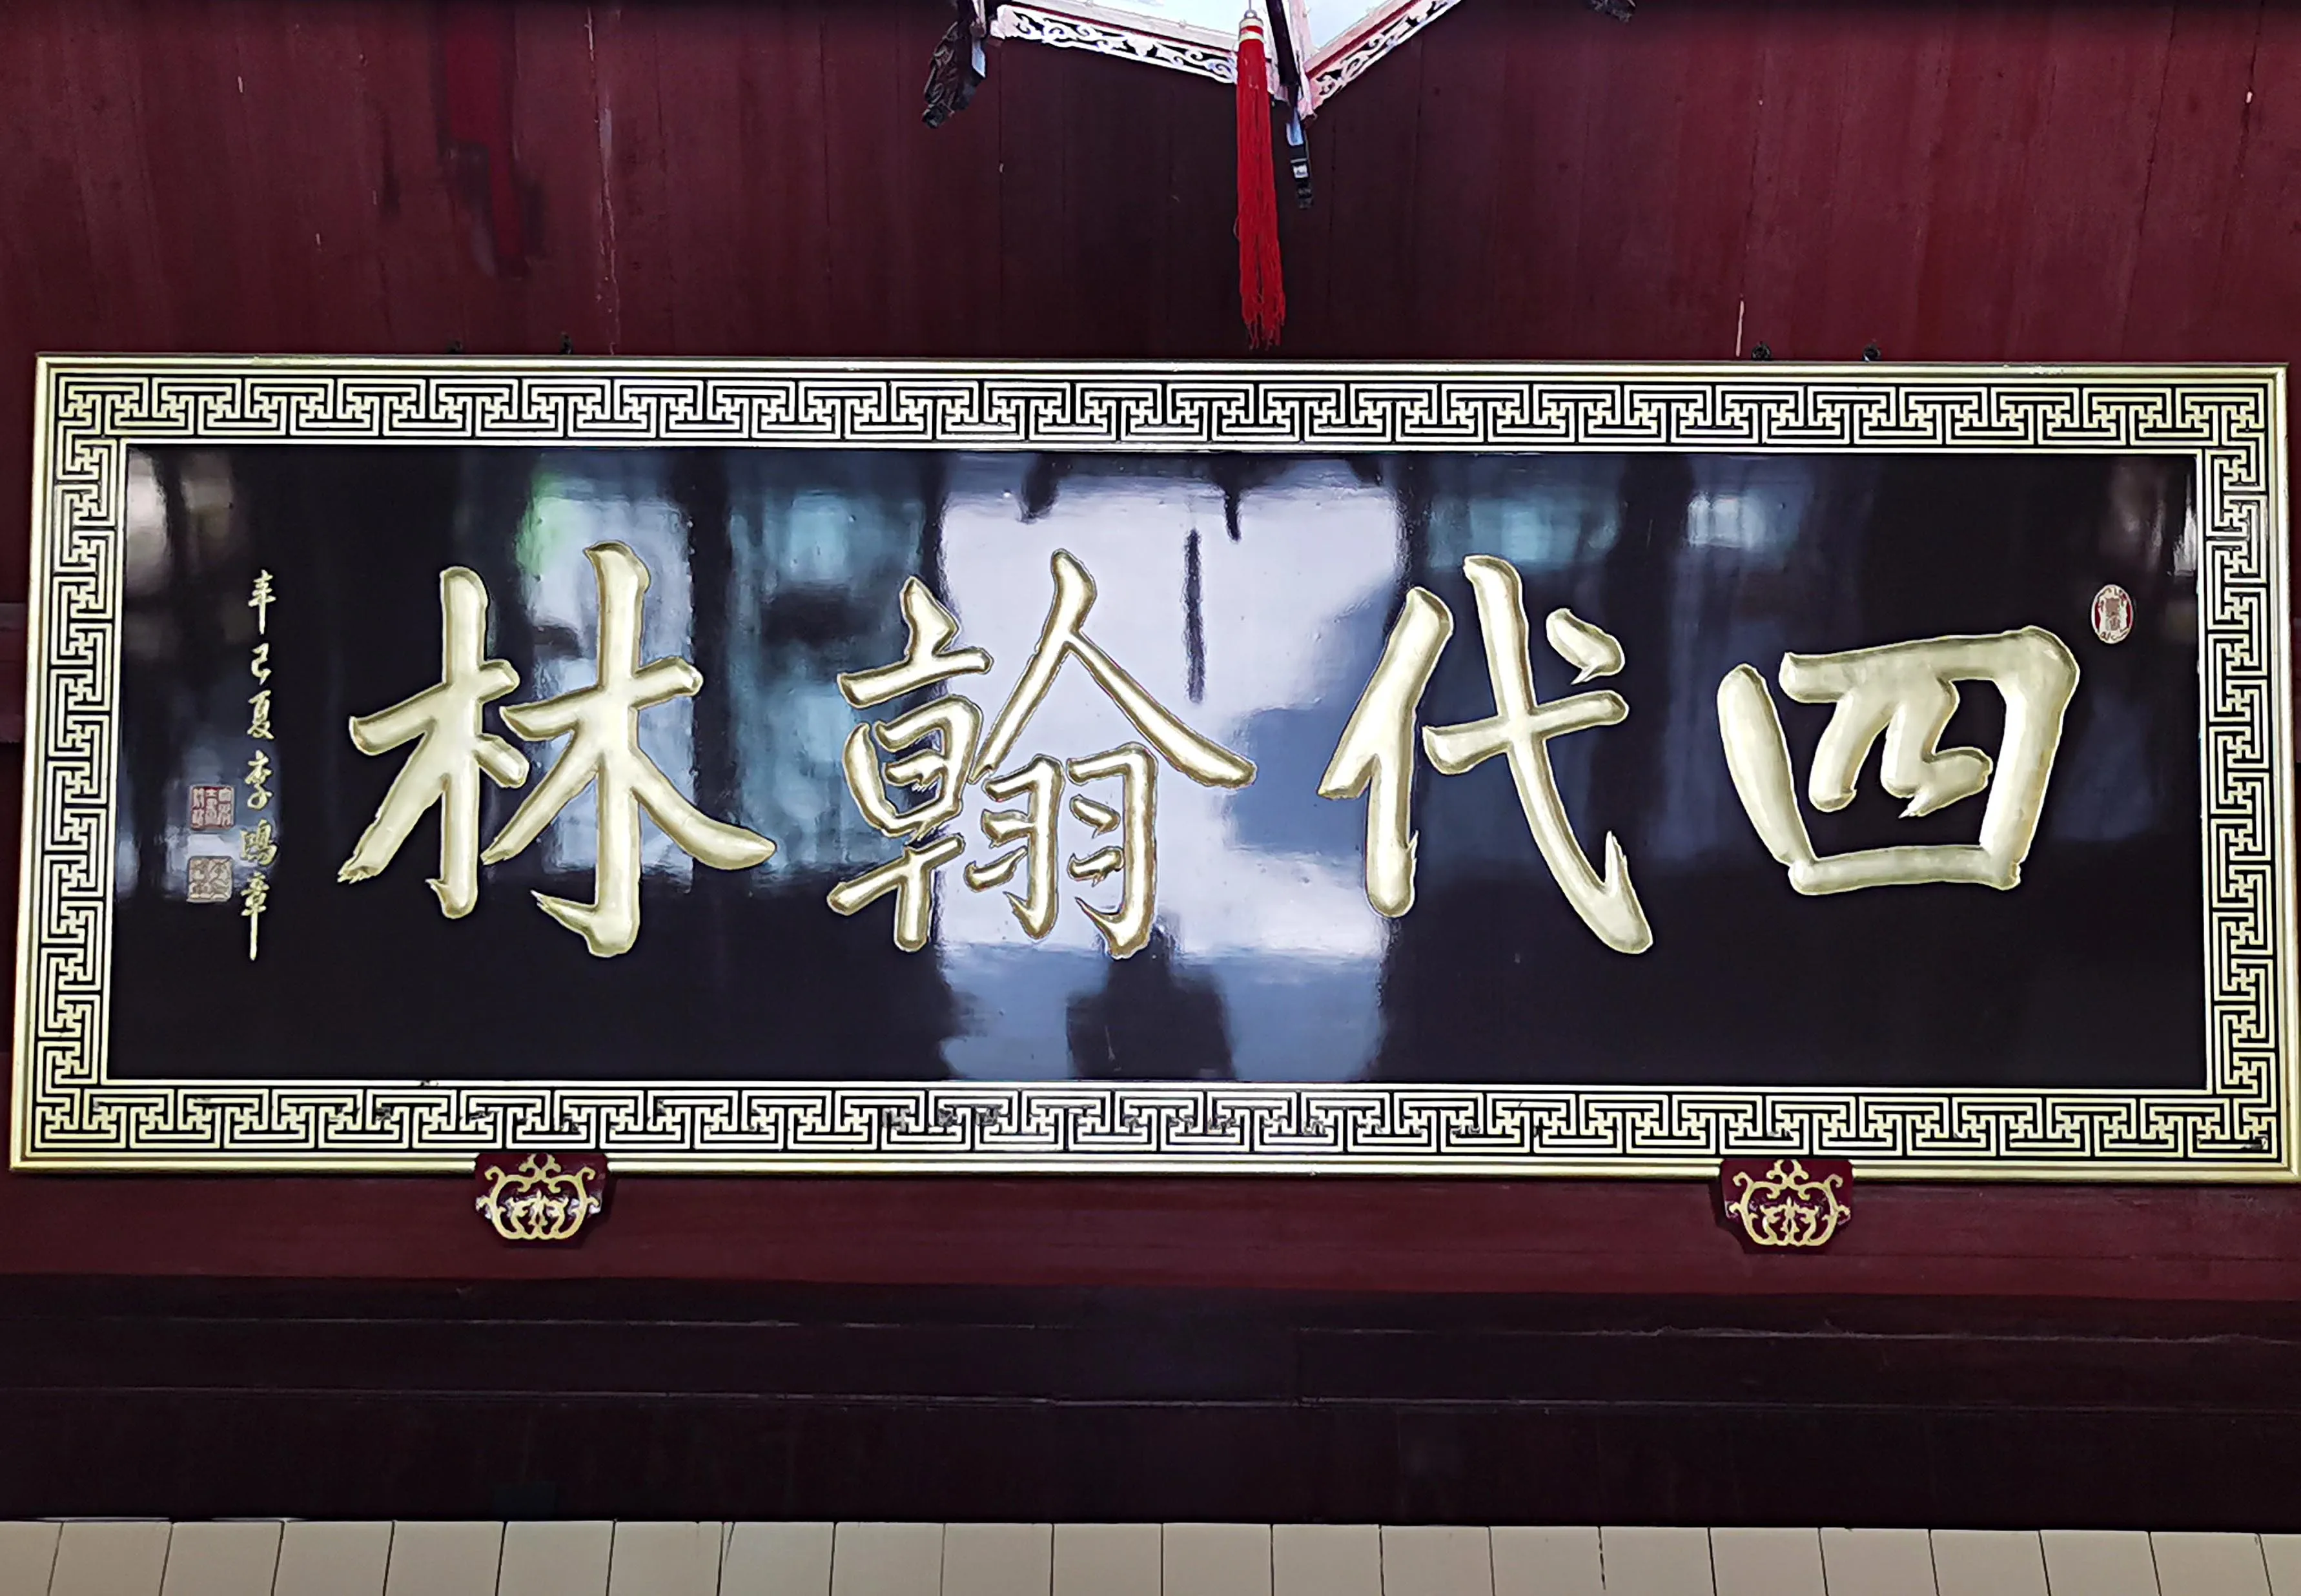 四代翰林
辛巳夏李鸿章